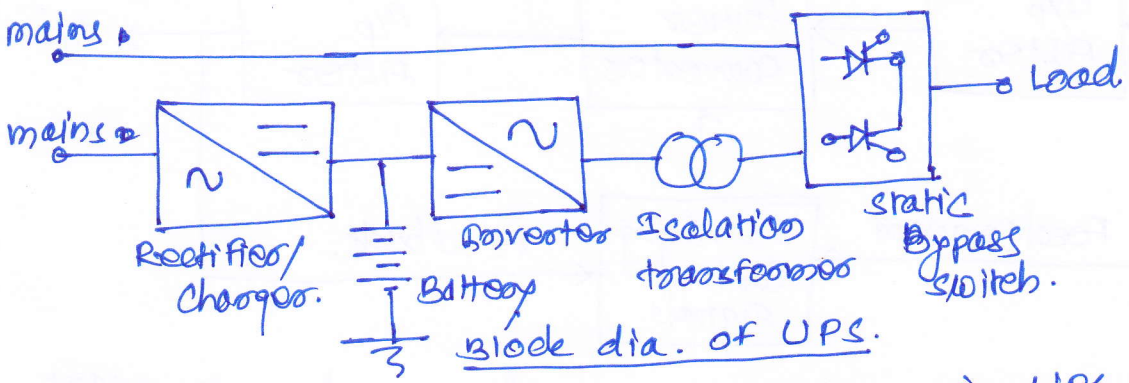 mains
mains
Load
Rectifier/
charger.
Battery
Inverter
Isolation
transformer
static
Bypass
switch.
Block dia. of UPS.
UPS